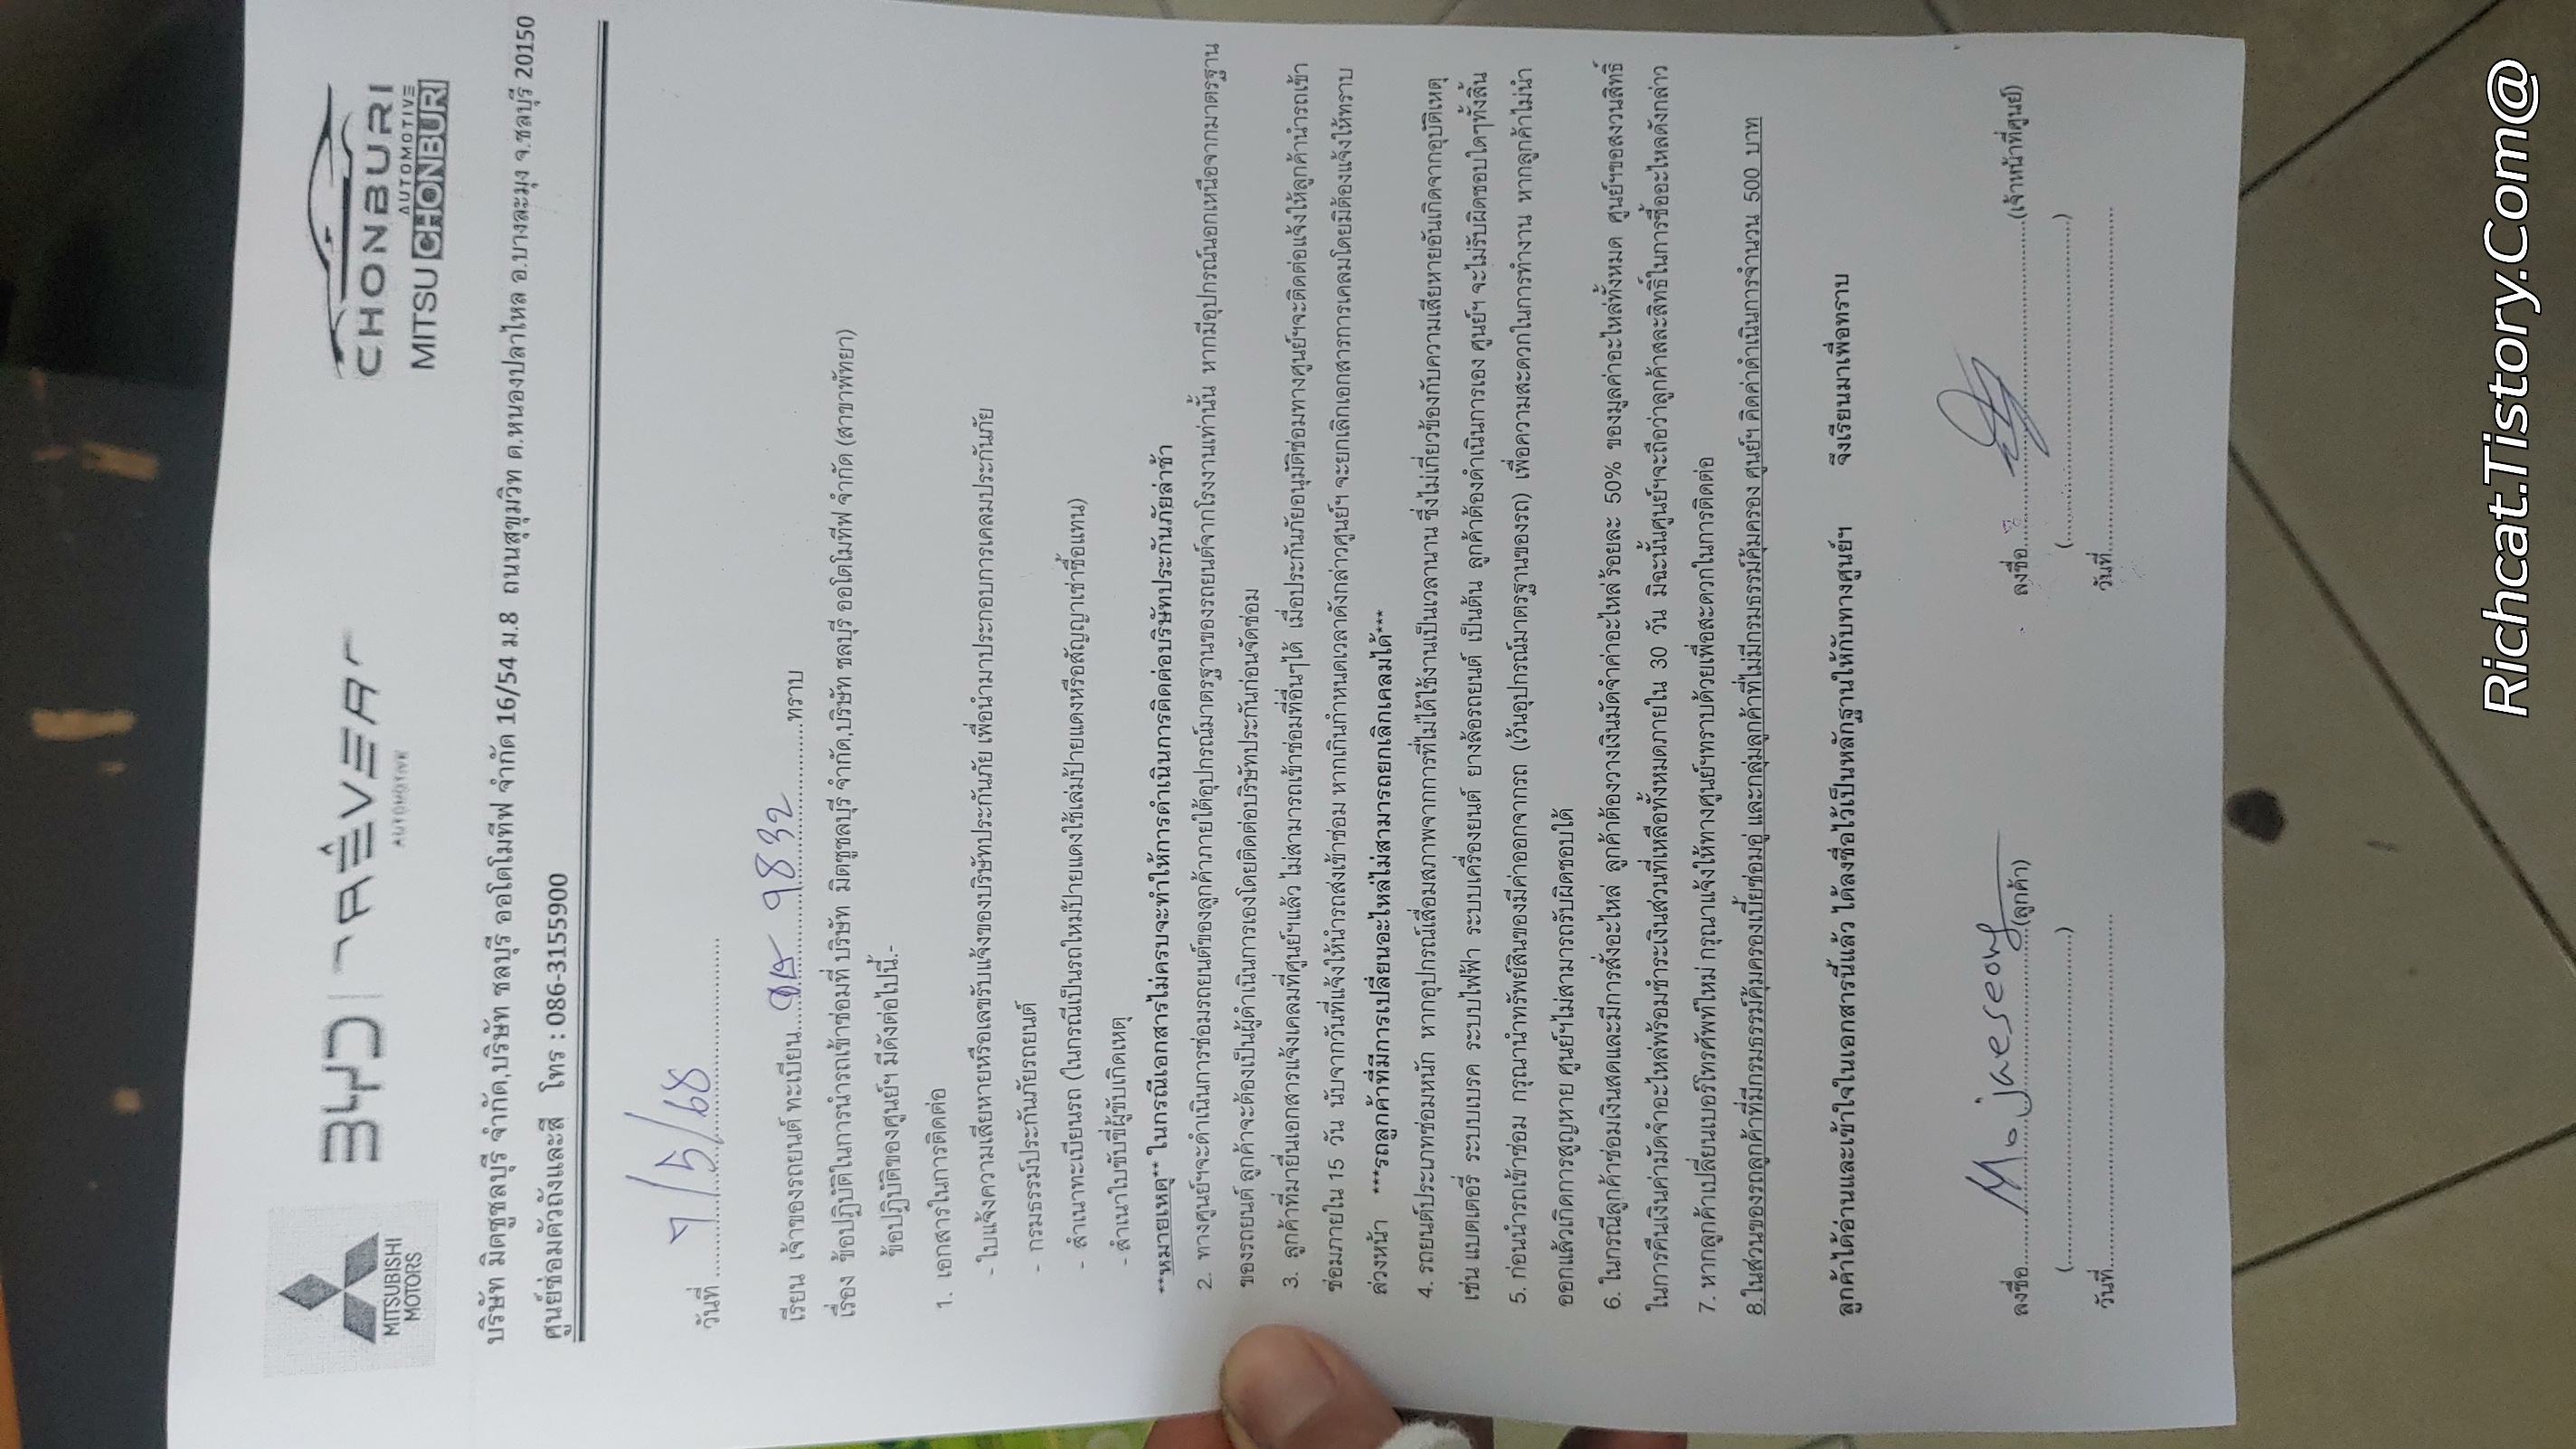 MITSUBISHI
MOTORS
BYD
RÊVER
AUTOMOTIVE
CHONBURI
AUTOMOTIVE
MITSU CHONBURI
บริษัท มิตซูชลบุรี จำกัด,บริษัท ชลบุรี ออโตโมทีฟ จำกัด 16/54 ม.8 ถนนสุขุมวิท ต.หนองปลาไหล อ.บางละมุง จ.ชลบุรี 20150
ศูนย์ซ่อมตัวถังและสี โทร : 086-3155900
วันที่ 7/5/68
เรียน เจ้าของรถยนต์ ทะเบียน 9832 ทราบ
เรื่อง ข้อปฏิบัติในการนำรถเข้าซ่อมที่ บริษัท มิตซูชลบุรี จำกัด,บริษัท ชลบุรี ออโตโมทีฟ จำกัด (สาขาพัทยา)
ข้อปฏิบัติของศูนย์ฯ มีดังต่อไปนี้.-
1. เอกสารในการติดต่อ
- ใบแจ้งความเสียหายหรือเลขรับแจ้งของบริษัทประกันภัย เพื่อนำมาประกอบการเคลมประกันภัย
- กรมธรรม์ประกันภัยรถยนต์
- สำเนาทะเบียนรถ (ในกรณีเป็นรถใหม่ป้ายแดงใช้เล่มป้ายแดงหรือสัญญาเช่าซื้อแทน)
- สำเนาใบขับขี่ผู้ขับเกิดเหตุ
**หมายเหตุ** ในกรณีเอกสารไม่ครบจะทำให้การดำเนินการติดต่อบริษัทประกันภัยล่าช้า
2. ทางศูนย์ฯจะดำเนินการซ่อมรถยนต์ของลูกค้าภายใต้อุปกรณ์มาตรฐานของรถยนต์จากโรงงานเท่านั้น หากมีอุปกรณ์นอกเหนือจากมาตรฐาน
ของรถยนต์ ลูกค้าจะต้องเป็นผู้ดำเนินการเองโดยติดต่อบริษัทประกันก่อนจัดซ่อม
3. ลูกค้าที่มายื่นเอกสารแจ้งเคลมที่ศูนย์ฯแล้ว ไม่สามารถเข้าซ่อมที่อื่นๆได้ เมื่อประกันภัยอนุมัติซ่อมทางศูนย์ฯจะติดต่อแจ้งให้ลูกค้านำรถเข้า
ซ่อมภายใน 15 วัน นับจากวันที่แจ้งให้นำรถส่งเข้าซ่อม หากเกินกำหนดเวลาดังกล่าวศูนย์ฯ จะยกเลิกเอกสารการเคลมโดยมิต้องแจ้งให้ทราบ
ล่วงหน้า ***รถลูกค้าที่มีการเปลี่ยนอะไหล่ไม่สามารถยกเลิกเคลมได้***
4. รถยนต์ประเภทซ่อมหนัก หากอุปกรณ์เสื่อมสภาพจากการที่ไม่ได้ใช้งานเป็นเวลานาน ซึ่งไม่เกี่ยวข้องกับความเสียหายอันเกิดจากอุบัติเหตุ
เช่น แบตเตอรี่ ระบบเบรค ระบบไฟฟ้า ระบบเครื่องยนต์ ยางล้อรถยนต์ เป็นต้น ลูกค้าต้องดำเนินการเอง ศูนย์ฯ จะไม่รับผิดชอบใดๆทั้งสิ้น
5. ก่อนนำรถเข้าซ่อม กรุณานำทรัพย์สินของมีค่าออกจากรถ (เว้นอุปกรณ์มาตรฐานของรถ) เพื่อความสะดวกในการทำงาน หากลูกค้าไม่นำ
ออกแล้วเกิดการสูญหาย ศูนย์ฯไม่สามารถรับผิดชอบได้
6. ในกรณีลูกค้าซ่อมเงินสดและมีการสั่งอะไหล่ ลูกค้าต้องวางเงินมัดจำค่าอะไหล่ร้อยละ 50% ของมูลค่าอะไหล่ทั้งหมด ศูนย์ฯขอสงวนสิทธิ์
ในการคืนเงินค่ามัดจำอะไหล่พร้อมชำระเงินส่วนที่เหลือทั้งหมดภายใน 30 วัน มิฉะนั้นศูนย์ฯจะถือว่าลูกค้าสละสิทธิ์ในการซื้ออะไหล่ดังกล่าว
7. หากลูกค้าเปลี่ยนเบอร์โทรศัพท์ใหม่ กรุณาแจ้งให้ทางศูนย์ฯทราบด้วยเพื่อสะดวกในการติดต่อ
8.ในส่วนของรถลูกค้าที่มีกรมธรรม์คุ้มครองเบี้ยซ่อมอู่ และกลุ่มลูกค้าที่ไม่มีกรมธรรม์คุ้มครอง ศูนย์ฯ คิดค่าดำเนินการจำนวน 500 บาท
ลูกค้าได้อ่านและเข้าใจในเอกสารนี้แล้ว ได้ลงชื่อไว้เป็นหลักฐานให้กับทางศูนย์ฯ จึงเรียนมาเพื่อทราบ
ลงชื่อ Mo jaeseong (ลูกค้า) ลงชื่อ (เจ้าหน้าที่ศูนย์)
วันที่ วันที่
Richcat.Tistory.Com@